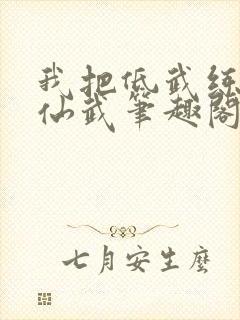 我把低武练
仙武笔趣阁
七月安生麼